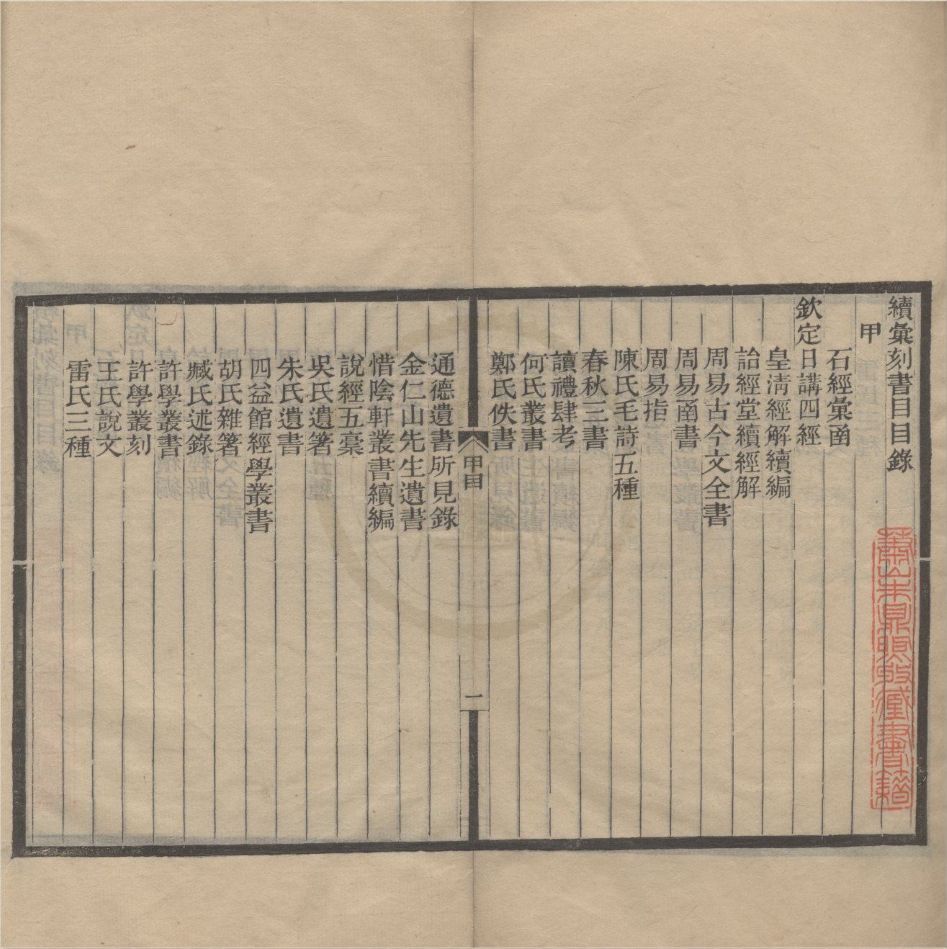 續彙刻書目目錄
甲
石經彙函
欽定日講四經
皇淸經解續編
詒經堂續經解
周易古今文全書
周易函書
周易指
陳氏毛詩五種
春秋三書
讀禮肆考
何氏叢書
鄭氏佚書
甲目
一
通德遺書所見錄
金仁山先生遺書
惜陰軒叢書續編
說經五稾
吳氏遺箸
朱氏遺書
四益館經學叢書
胡氏雜箸
臧氏述錄
許學叢書
許學叢刻
王氏說文
雷氏三種